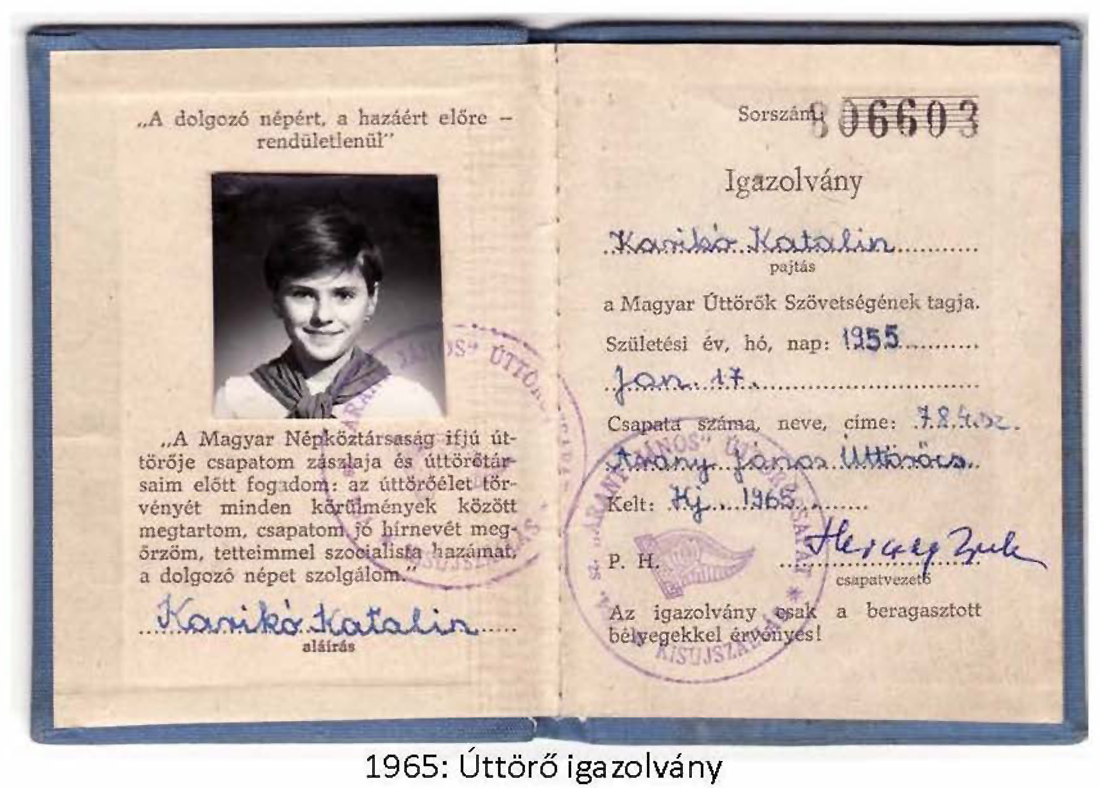 „A dolgozó népért, a hazáért előre –
rendületlenül"
„A Magyar Népköztársaság ifjú út-
törője csapatom zászlaja és úttörőtár-
saim előtt fogadom: az úttörőélet tör-
vényét minden körülmények között
megtartom, csapatom jó hírnevét meg-
őrzöm, tetteimmel szocialista hazámat,
a dolgozó népet szolgálom."
Karikó Katalin
aláírás
Sorszám 806603
Igazolvány
Karikó Katalin
pajtás
a Magyar Úttörők Szövetségének tagja.
Születési év, hó, nap: 1955
Jan. 17.
Csapata száma, neve, címe:
Arany János Úttörőcs.
Kelt: Kj. 1965
P. H.
csapatvezető
Az igazolvány csak a beragasztott
bélyegekkel érvényes!
"ARANY JÁNOS" ÚTTÖRŐCSAPAT
KISUJSZÁLLÁS
1965: Úttörő igazolvány